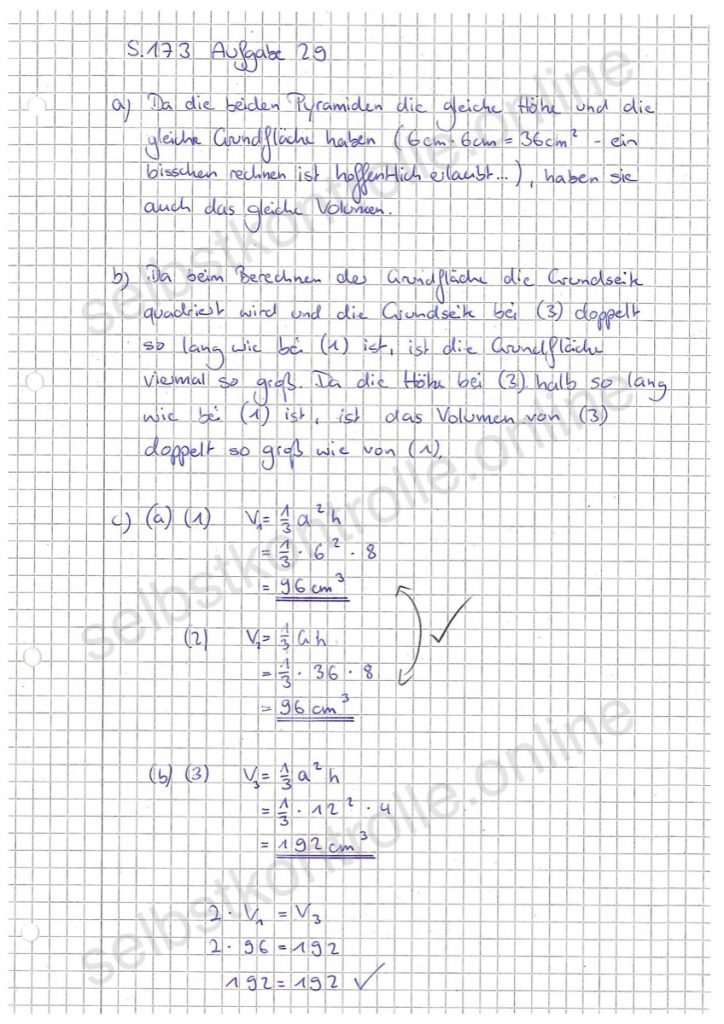 S.173 Aufgabe 29
a) Da die beiden Pyramiden die gleiche Höhe und die
gleiche Grundfläche haben (6cm·6cm = 36cm² - ein
bisschen rechnen ist hoffentlich erlaubt...), haben sie
auch das gleiche Volumen.
b) Da beim Berechnen der Grundfläche die Grundseite
quadriert wird und die Grundseite bei (3) doppelt
so lang wie bei (1) ist, ist die Grundfläche
viermal so groß. Da die Höhe bei (3) halb so lang
wie bei (1) ist, ist das Volumen von (3)
doppelt so groß wie von (1).
c) (a) (1) V₁ = 1/3 a² h
= 1/3 · 6² · 8
= 96 cm³
(2) V₂ = 1/3 G h
= 1/3 · 36 · 8
= 96 cm³
(b) (3) V₃ = 1/3 a² h
= 1/3 · 12² · 4
= 192 cm³
2 · V₁ = V₃
2 · 96 = 192
192 = 192 ✓
selbstkontrolle.online
selbstkontrolle.online
selbstkontrolle.online